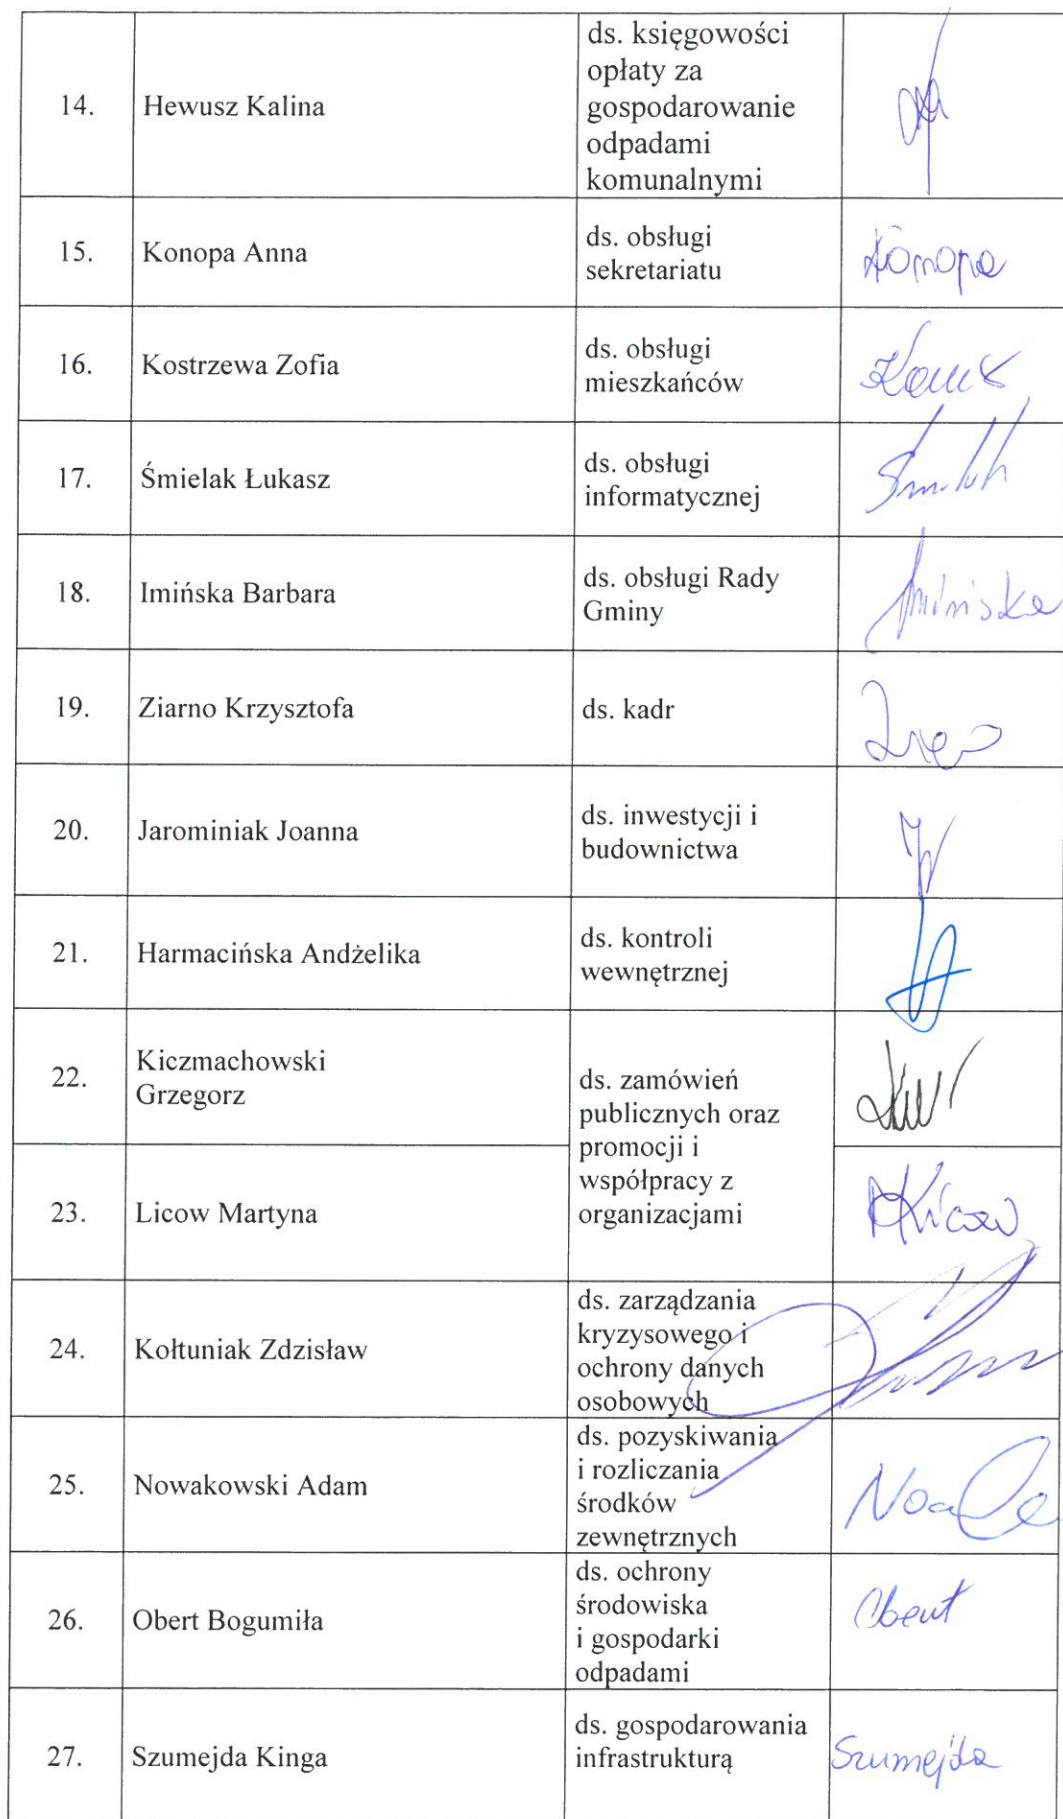 14.
Hewusz Kalina
ds. księgowości
opłaty za
gospodarowanie
odpadami
komunalnymi
15.
Konopa Anna
ds. obsługi
sekretariatu
Konopa
16.
Kostrzewa Zofia
ds. obsługi
mieszkańców
17.
Śmielak Łukasz
ds. obsługi
informatycznej
18.
Imińska Barbara
ds. obsługi Rady
Gminy
Imińska
19.
Ziarno Krzysztofa
ds. kadr
20.
Jarominiak Joanna
ds. inwestycji i
budownictwa
21.
Harmacińska Andżelika
ds. kontroli
wewnętrznej
22.
Kiczmachowski
Grzegorz
ds. zamówień
publicznych oraz
promocji i
współpracy z
organizacjami
23.
Licow Martyna
24.
Kołtuniak Zdzisław
ds. zarządzania
kryzysowego i
ochrony danych
osobowych
25.
Nowakowski Adam
ds. pozyskiwania
i rozliczania
środków
zewnętrznych
26.
Obert Bogumiła
ds. ochrony
środowiska
i gospodarki
odpadami
Obert
27.
Szumejda Kinga
ds. gospodarowania
infrastrukturą
Szumejda